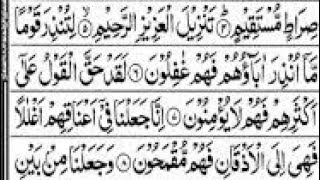 صِرَاطٍ مُّسْتَقِيْمٍ ۝۴ تَنْزِيْلَ الْعَزِيْزِ الرَّحِيْمِ ۝۵ لِتُنْذِرَ قَوْمًا
مَّاۤ اُنْذِرَ اٰبَآؤُهُمْ فَهُمْ غٰفِلُوْنَ ۝۶ لَقَدْ حَقَّ الْقَوْلُ عَلٰۤى
اَكْثَرِهِمْ فَهُمْ لَا يُؤْمِنُوْنَ ۝۷ اِنَّا جَعَلْنَا فِىْۤ اَعْنَاقِهِمْ اَغْلٰلًا
فَهِىَ اِلَى الْاَذْقَانِ فَهُمْ مُّقْمَحُوْنَ ۝۸ وَجَعَلْنَا مِنْۢ بَيْنِ